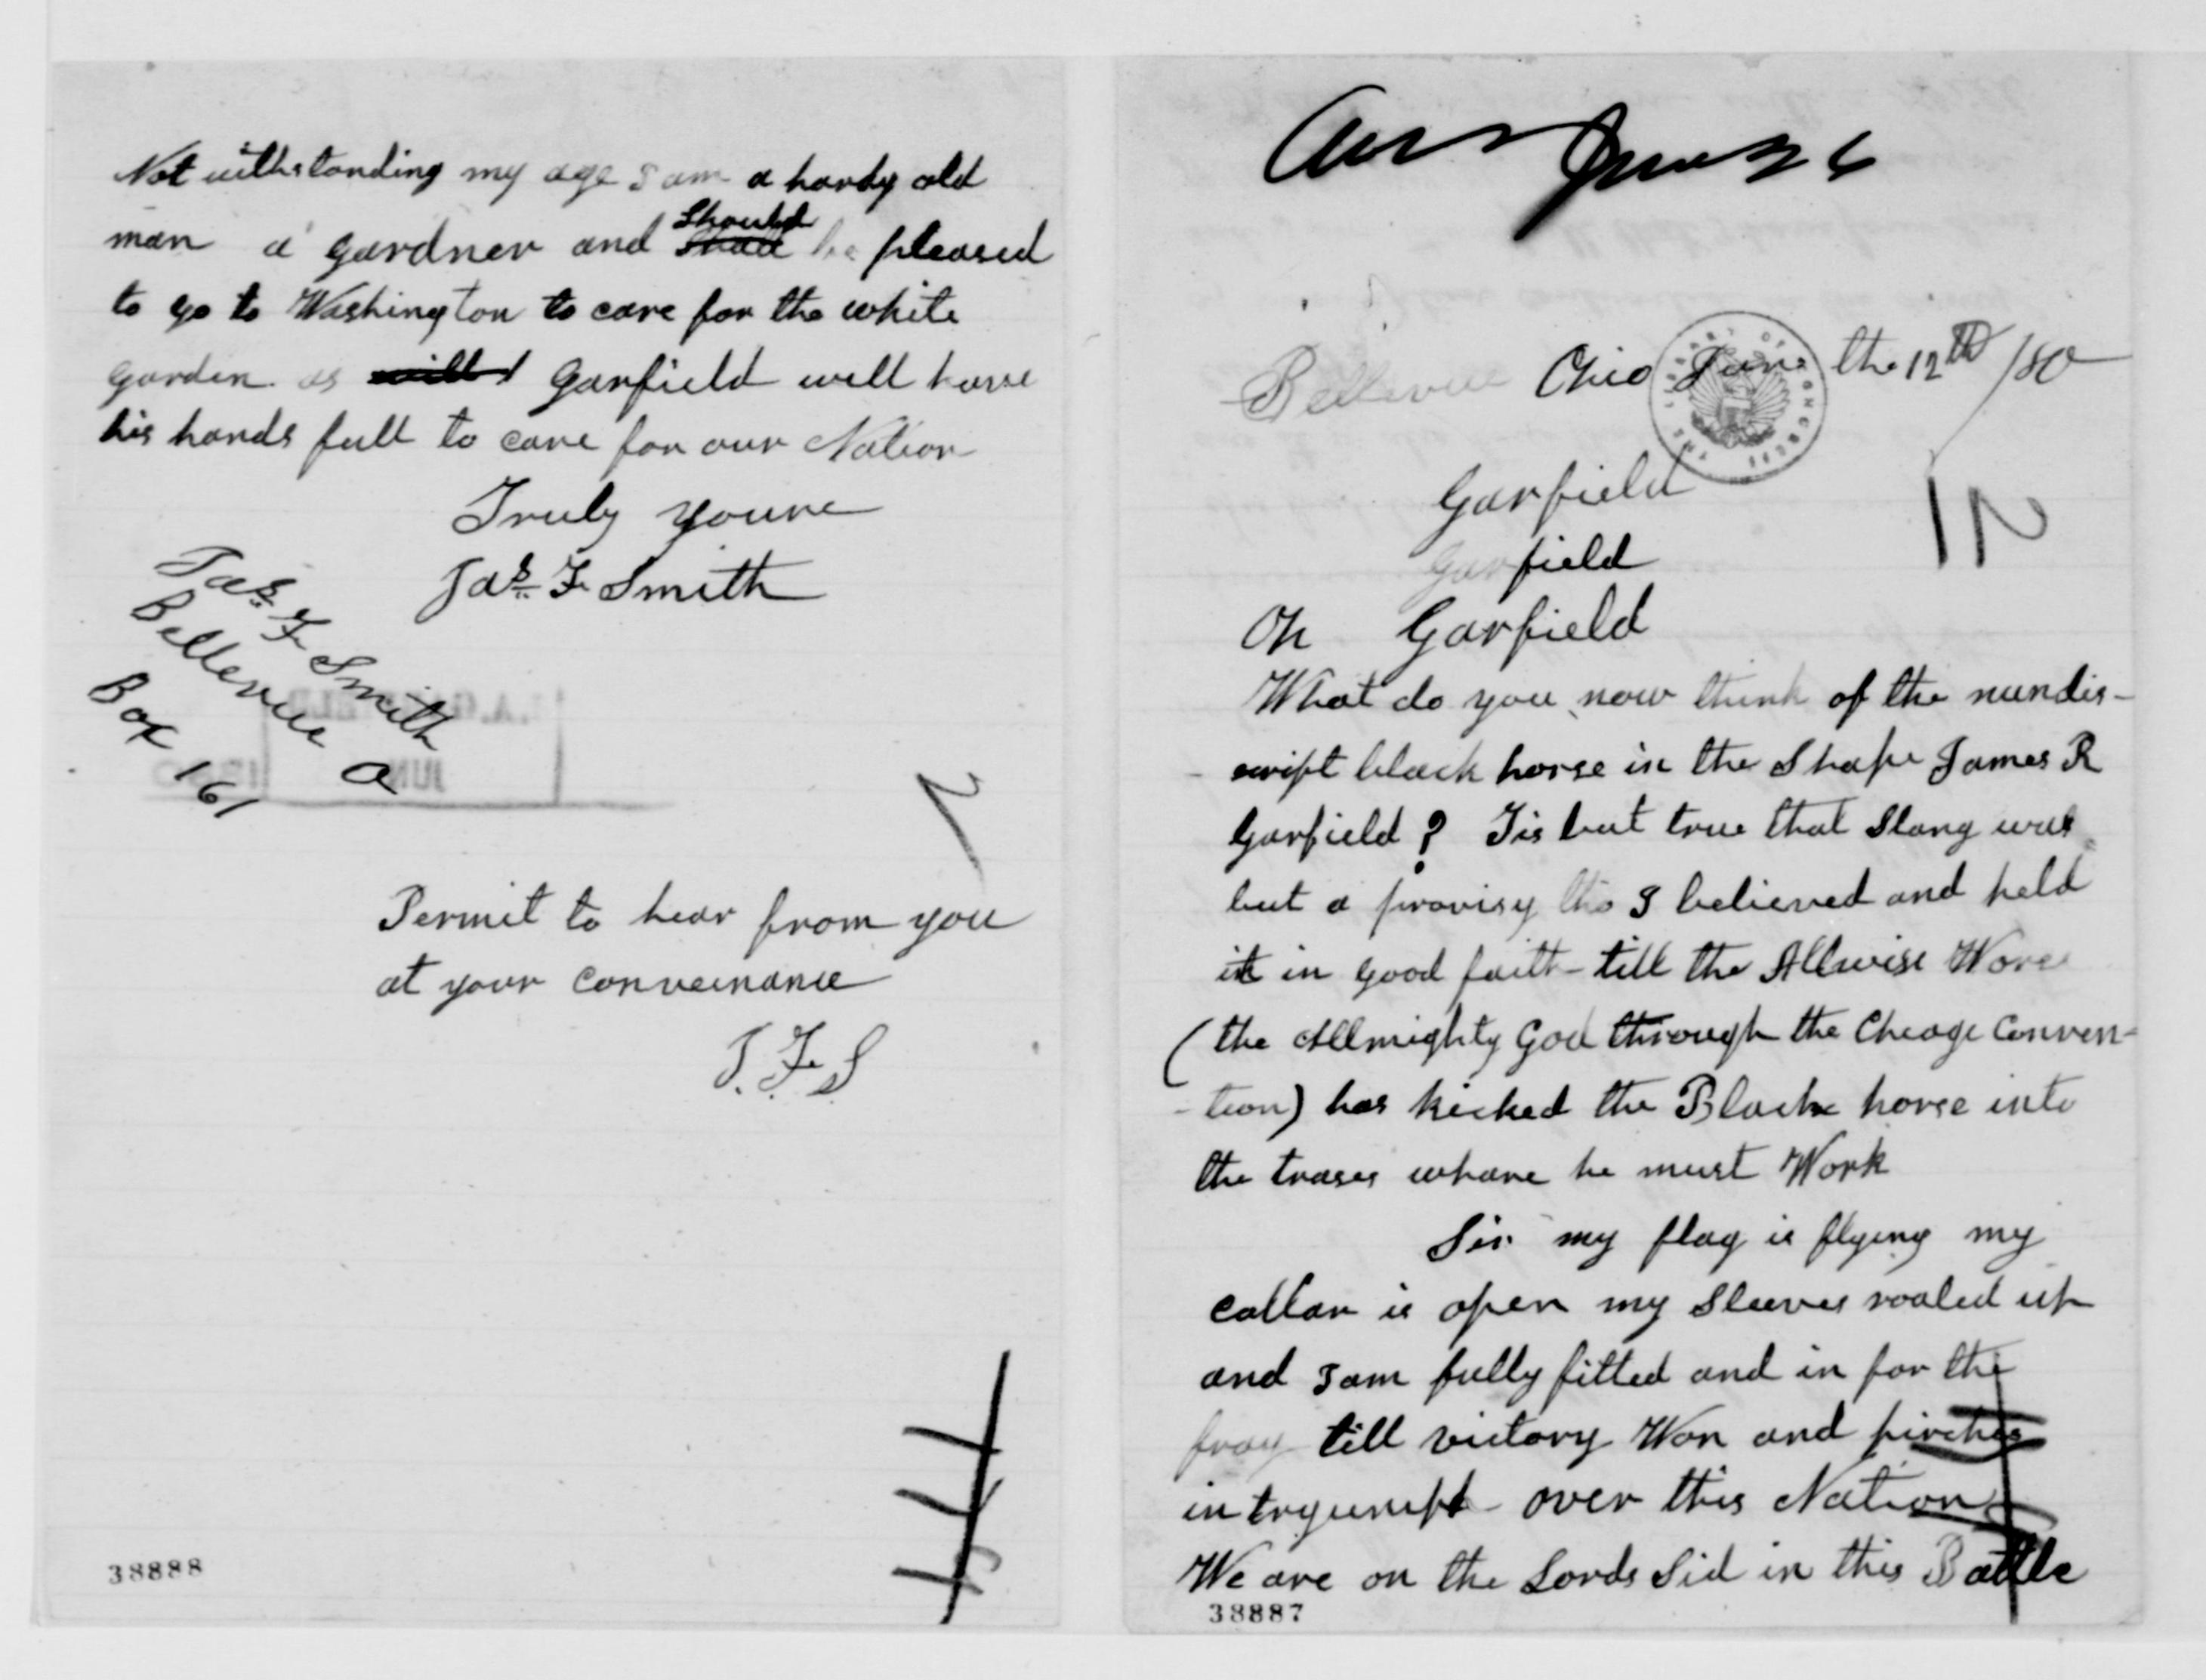 Not withstanding my age I am a hardy old
man a gardner and Should be pleased
to go to Washington to care for the white
garden as Garfield will have
his hands full to care for our Nation
Truly youre
Jas. F Smith
Jas. F Smith
Bellevue O
Box 161
Permit to hear from you
at your conveinance
J. F. S
38888
Ans June 26
Bellevue Ohio June the 12th /80
Garfield
Garfield
Oh Garfield
What do you now think of the nundis-
script black horse in the Shape James R
Garfield? Tis but true that Slang was
but a provisy tho I believed and held
it in good faith till the Allwise
(the Allmighty God through the Cheago Conven-
-tion) has kicked the Black horse into
the trases whare he must Work
Sir my flag is flying my
collar is open my Sleeves rooled up
and I am fully fitted and in for the
fray till victory Won and pirches
in tryumpt over this Nation
We are on the Lords Sid in this Battle
38887